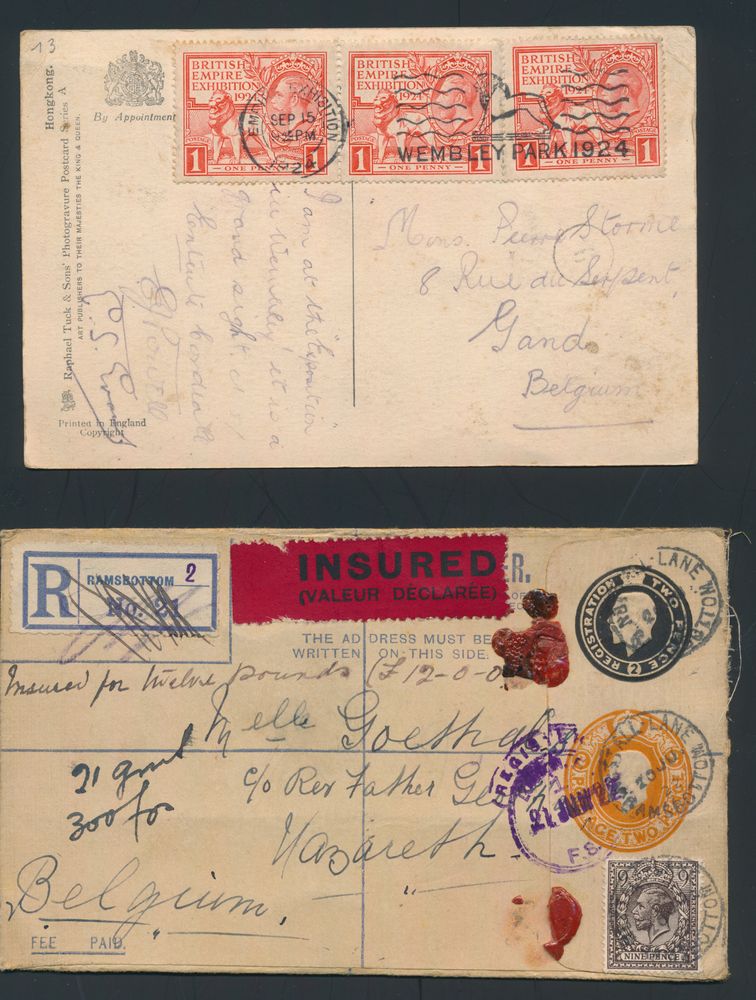 13
Hongkong.
Raphael Tuck & Sons' Photogravure Postcard Series A
ART PUBLISHERS TO THEIR MAJESTIES THE KING & QUEEN.
By Appointment
Printed in England
Copyright
BRITISH
EMPIRE
EXHIBITION
1924
1 1
ONE PENNY
BRITISH
EMPIRE
EXHIBITION
1924
1 1
ONE PENNY
BRITISH
EMPIRE
EXHIBITION
1924
1 1
ONE PENNY
EMPIRE EXHIBITION
SEP 15
PM
1924
WEMBLEY PARK 1924
I am at the Exposition
in Wembley! it is a
grand sight!
Mons. Pierre Storme
8 Rue du Serpent
Gand
Belgium
R
RAMSBOTTOM 2
No.
INSURED
(VALEUR DÉCLARÉE)
ER.
THE ADDRESS MUST BE
WRITTEN ON THIS SIDE.
Insured for twelve pounds (£12-0-0
Melle Goethals
c/o Rev Father
Nazareth
Belgium
21
300 fos
FEE PAID.
REGISTRATION TWO PENCE
(2)
LANE
LANE
REGIS
21 JUN 22
F.S.
TWO
9 9
NINE PENCE